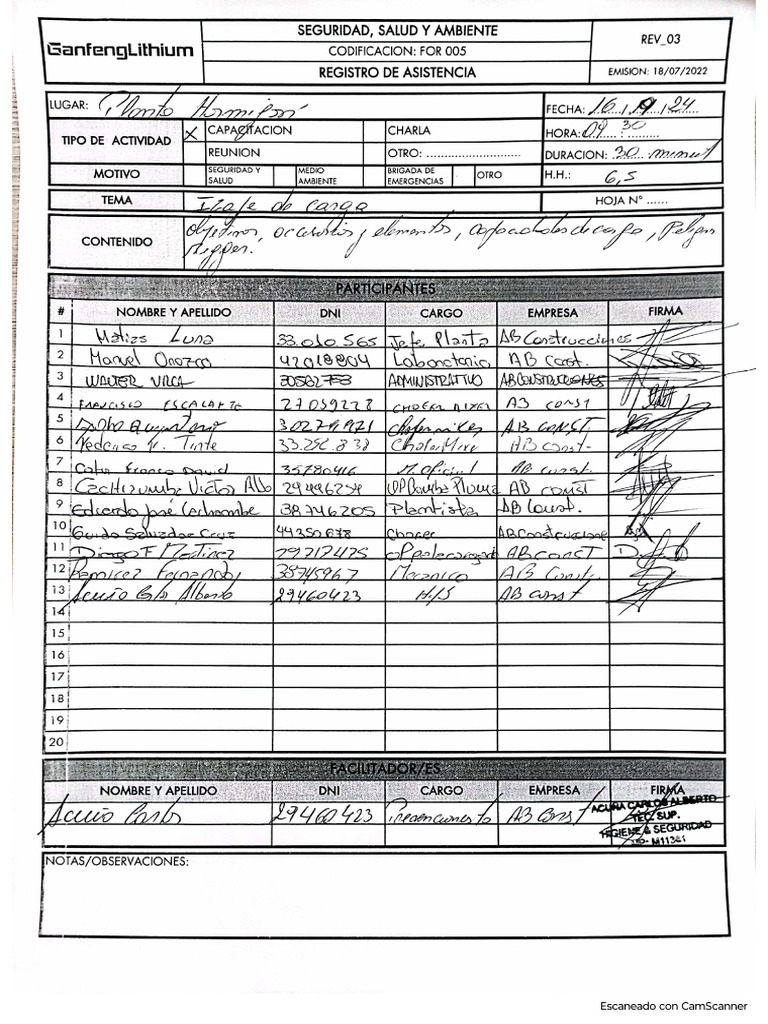 SEGURIDAD, SALUD Y AMBIENTE
GanfengLithium
CODIFICACION: FOR 005
REV_03
REGISTRO DE ASISTENCIA
EMISION: 18/07/2022
LUGAR: Planta Hormigon
FECHA: 16 / 9 / 24
TIPO DE ACTIVIDAD X CAPACITACION CHARLA HORA: 09 30
REUNION OTRO: DURACION: 30 minut
MOTIVO SEGURIDAD Y SALUD MEDIO AMBIENTE BRIGADA DE EMERGENCIAS OTRO H.H.: 6,5
TEMA Izaje de carga HOJA N° ......
CONTENIDO objetivos, accesorios y elementos, capacidades de carga, Peligros
rigger.
PARTICIPANTES
# NOMBRE Y APELLIDO DNI CARGO EMPRESA FIRMA
1 Matias Luna 33.010.565 Jefe Planta AB Construcciones
2 Manuel Orozco 42018804 Laboratorio AB Const.
3 WALTER VILCA 30582753 ADMINISTRATIVO AB CONSTRUCCIONES
4 FRANCISCO ESCALANTE 27059228 CHOFER MIXER AB CONST
5 30279971 AB CONST
6 Federico Tinte 33.256.838 Chofer Mixe AB Const.
7 Franco David 35780416 M. Oficial AB Const.
8 Victor Aldo 29496259 OP Bomba Pluma AB CONST
9 Eduardo José 38746205 Plantista AB Const.
10 Guido Salvador Cruz 44350678 Chofer AB Construccione
11 Diego F Martinez 29717475 AB CONST
12 Ramirez Fernando 35745967 Mecanico AB Const.
13 Acuña Carlos Alberto 29460423 H/S AB Const
14
15
16
17
18
19
20
FACILITADOR/ES
NOMBRE Y APELLIDO DNI CARGO EMPRESA FIRMA
Acuña Carlos 29460423 AB Const
ACUÑA CARLOS ALBERTO
TEC. SUP.
HIGIENE & SEGURIDAD
NOTAS/OBSERVACIONES:
Escaneado con CamScanner